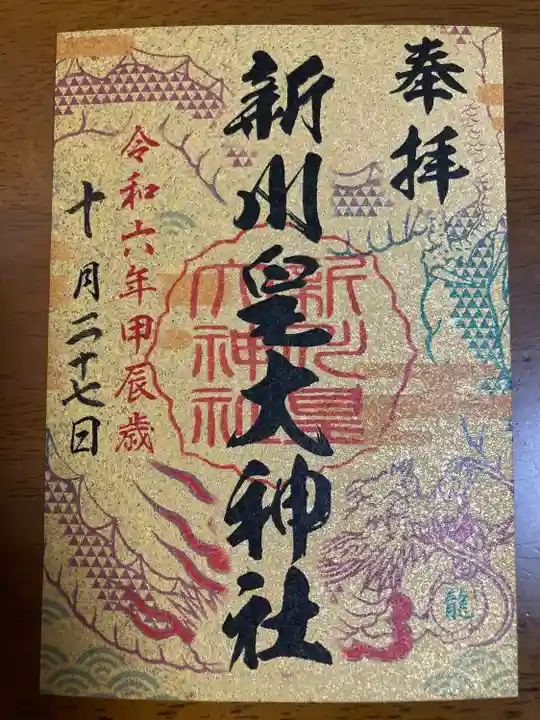 奉拝
新川皇大神社
新川皇
大神社
令和六年甲辰歳
十月二十七日
龍